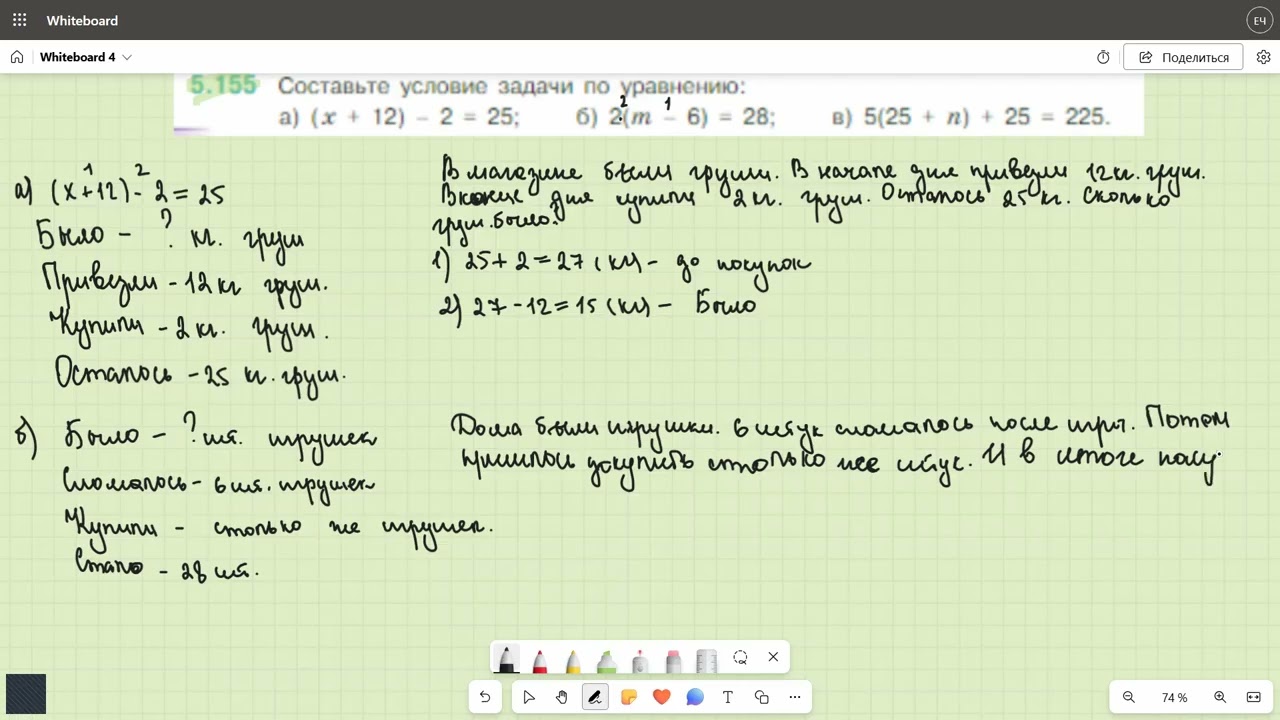 Whiteboard
ЕЧ
Whiteboard 4
Поделиться
5.155 Составьте условие задачи по уравнению:
а) (x + 12) − 2 = 25; б) 2(m − 6) = 28; в) 5(25 + n) + 25 = 225.
2 1
1 2
а) (x+12)-2=25
Было - ? кг. груш
Привезли - 12 кг груш.
Купили - 2 кг. груш.
Осталось - 25 кг. груш.
В магазине были груши. В начале дня привезли 12 кг. груш.
В конце дня купили 2 кг. груш. Осталось 25 кг. Сколько
груш было?
1) 25+2=27 (кг) - до покупок
2) 27-12=15 (кг) - Было
б) Было - ? шт. игрушек
Сломалось - 6 шт. игрушек
Купили - столько же игрушек.
Стало - 28 шт.
Дома были игрушки. 6 штук сломалось после игры. Потом
пришлось докупить столько же штук. И в итоге
74 %